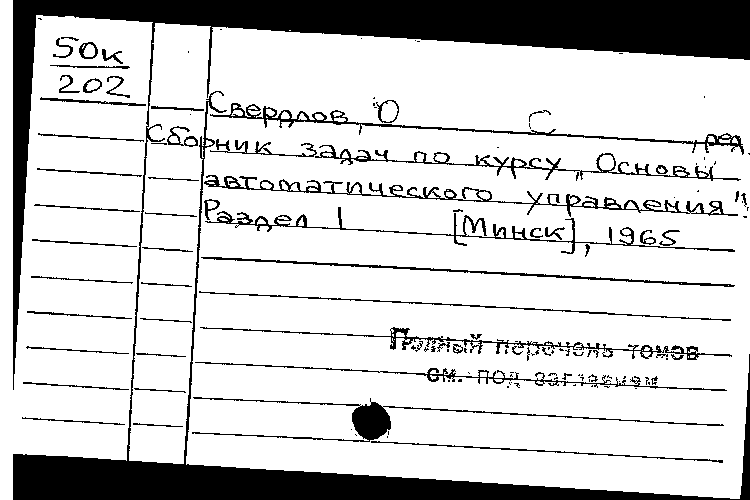 50к
202
Свердлов, О С , ред.
Сборник задач по курсу „Основы
автоматического управления".
Раздел 1 [Минск], 1965
Полный перечень томов
см. под заглавием